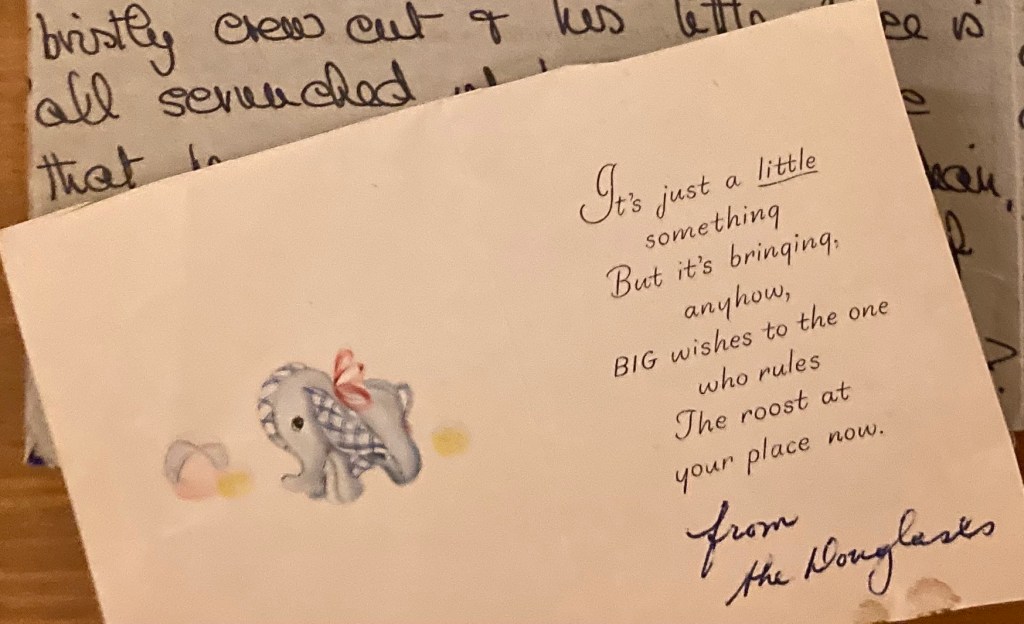 bristly crew cut & his little
ee is
all scrunched
that
It's just a little
something
But it's bringing,
anyhow,
BIG wishes to the one
who rules
The roost at
your place now.
from
the Douglases